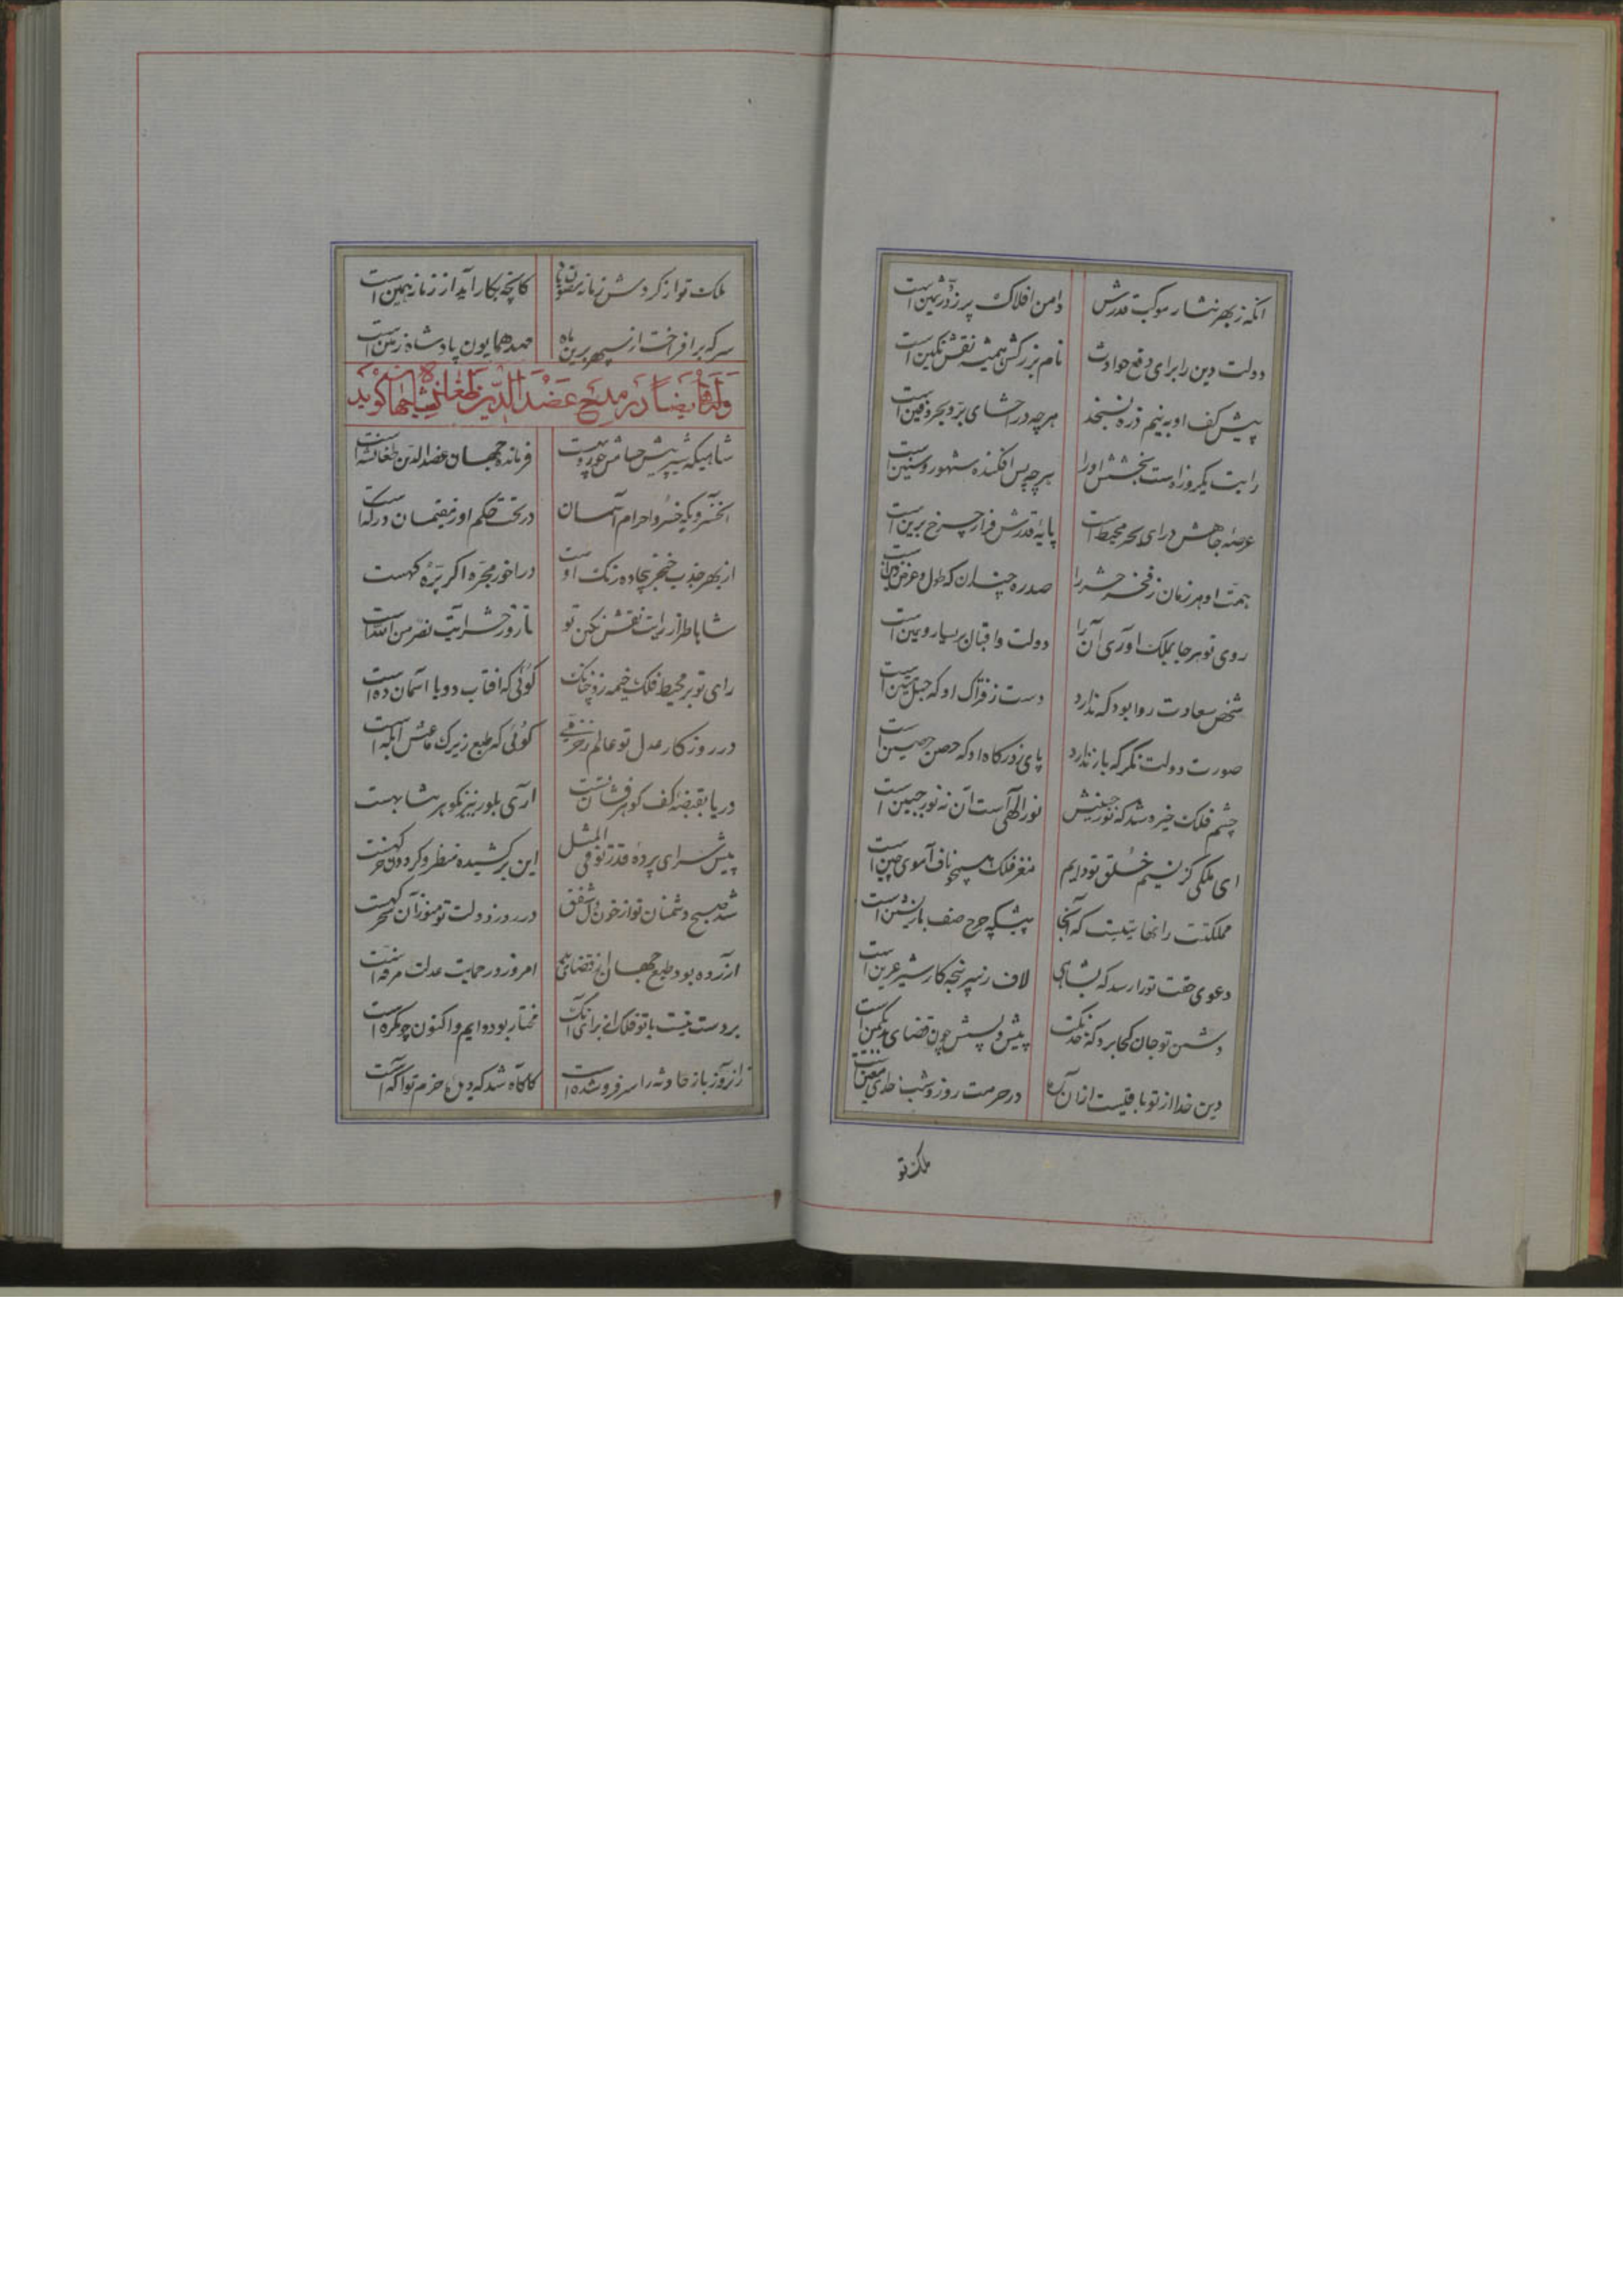 انکه ز بهر نثار موکب قدرش دامن افلاک پر ز در ثمین است
دولت دین را برای دفع حوادث نام بزرکش همیشه نقش نکین است
پیش کف او بنیم ذره نسنجد هرچه در احشای بر و بحر دفین است
راتب یکروزه است بخشش او را هرچه پس افکنده شهور و سنین است
عرصه جاهش ورای بحر محیط است پایه قدرش فراز چرخ برین است
همت او هر زمان ز فخر حشر را صدره چندان که طول و عرض زمین است
روی تو هر جا بملک اوری آنرا دولت و اقبال بر یسار و یمین است
شخص سعادت روا بود که ندارد دست ز فتراک او که حبل متین است
صورت دولت نکر که باز ندارد پای ز درکاه او که حصن حصین است
چشم فلک خیره شد که نور جبینش نور الهی است آن نه نور جبین است
ای ملکی کز نسیم خلق تو دایم مغز فلک همچو ناف آهوی چین است
مملکتت را نهایتیست که آنجا پیشکه چرخ صف بازپسین است
دعوی حقت تو را رسد که بشاهی لاف ز سرپنجه کار شیر عرین است
دشمن تو جان کجا برد که خدنکت پیش و پسش چون قضای بد بکمین است
دین خدا از تو باقیست ازان ره در حرمت روز و شب خدای معین است
ملک تو
ملک تو از کردش زمانه مصون باد کانچه بکار آید از زمانه همین است
سر که برافراخت از سپهر برین ماه مهد همایون پادشاه زمین است
وله ایضا در مدح عضدالدین طغانشاه کوید
شاهیکه شیر پیش حسامش چو روبهست فرمانده جهان عضدالدین طغانشه است
آنخسرویکه خسرو اجرام آسمان در تحت حکم او ز مقیمان درکه است
از بهر جذب خنجر بیجاده رنک اوست در اخور مجره اکر پره کهست
شاها طراز رایت نقش نکین تو تا روز حشر آیت نصر من الله است
رای تو بر محیط فلک خیمه زد چنانک کوئی که افتاب دوبا اسمان ده است
در روزکار عدل تو عالم ز خرمی کوئی که طبع زیرک عاشق ابله است
دریا بقبضه کف کوهر فشان تست آری بلور نیز بکوهر مشابهست
پیش سرای پرده قدر تو فی المثل این برکشیده منظر و کردون خرکهست
شد صبح دشمنان تو از خون دل شفق در روز دولت تو هنوز آن سحرکهست
آزرده بود طبع جهان از قضای بد امروز در حمایت عدلت مرفه است
بر دست نیست با تو فلک را برای آنک مختار بود دایم و اکنون چو مکره است
زانروز باز حادثه را سر فرو شده است کاکاه شد که دل حزم تو آکه است